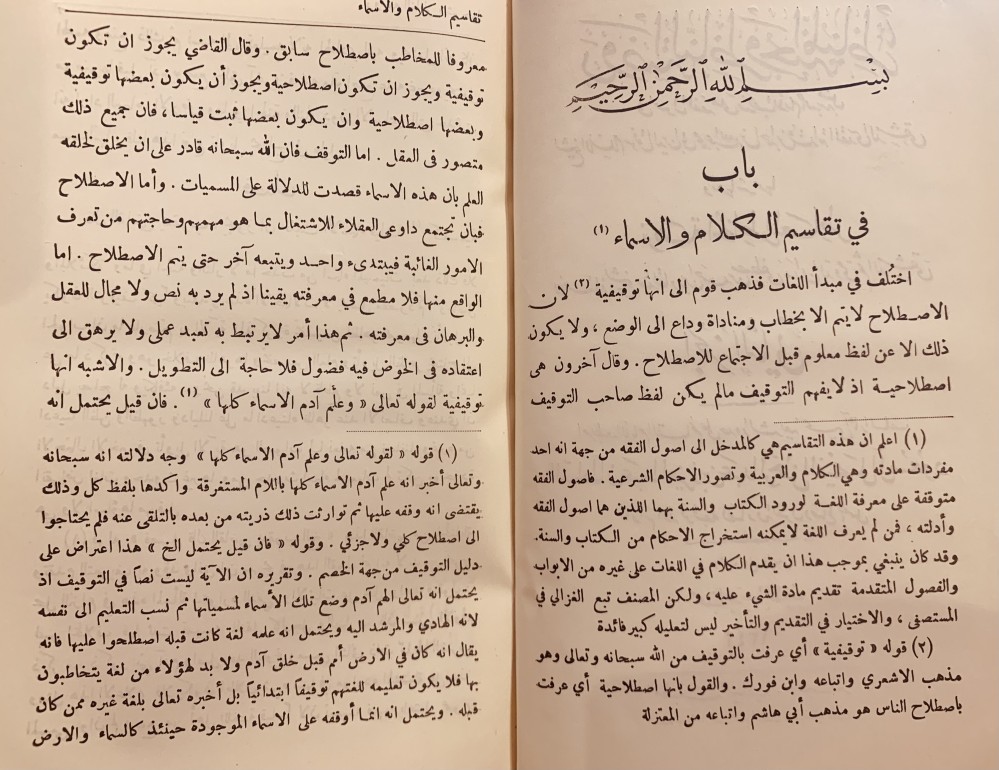 بسم الله الرحمن الرحيم
باب
في تقاسيم الكلام والاسماء (١)
اختُلف في مبدأ اللغات فذهب قوم الى انها توقيفية (٢) لان
الاصطلاح لايتم الا بخطاب ومناداة وداع الى الوضع ، ولا يكون
ذلك الا عن لفظ معلوم قبل الاجتماع للاصطلاح . وقال آخرون هى
اصطلاحية اذ لايفهم التوقيف مالم يكن لفظ صاحب التوقيف
(١) اعلم ان هذه التقاسيم هي كالمدخل الى اصول الفقه من جهة انه احد
مفردات مادته وهي الكلام والعربية وتصور الاحكام الشرعية . فاصول الفقه
متوقفة على معرفة اللغة لورود الكتاب والسنة بهما اللذين هما اصول الفقه
وأدلته ، فمن لم يعرف اللغة لايمكنه استخراج الاحكام من الكتاب والسنة.
وقد كان ينبغي بموجب هذا ان يقدم الكلام في اللغات على غيره من الابواب
والفصول المتقدمة تقديم مادة الشيء عليه ، ولكن المصنف تبع الغزالي في
المستصفى ، والاختيار في التقديم والتأخير ليس لتعليله كبير فائدة
(٢) قوله « توقيفية » أي عرفت بالتوقيف من الله سبحانه وتعالى وهو
مذهب الاشعري واتباعه وابن فورك . والقول بانها اصطلاحية أي عرفت
باصطلاح الناس هو مذهب أبي هاشم واتباعه من المعتزلة
تقاسيم الكلام والاسماء
معروفا للمخاطب باصطلاح سابق . وقال القاضي يجوز ان تكون
توقيفية ويجوز ان تكون اصطلاحية ويجوز أن يكون بعضها توقيفية
وبعضها اصطلاحية وان يكون بعضها ثبت قياسا ، فان جميع ذلك
متصور فى العقل . اما التوقف فان الله سبحانه قادر على ان يخلق لخلقه
العلم بان هذه الاسماء قصدت للدلالة على المسميات . وأما الاصطلاح
فبان تجتمع داوعى العقلاء للاشتغال بما هو مهمهم وحاجتهم من تعرف
الامور الغائبة فيبتدىء واحد ويتبعه آخر حتى يتم الاصطلاح . اما
الواقع منها فلا مطمع في معرفته يقينا اذ لم يرد به نص ولا مجال للعقل
والبرهان فى معرفته . ثم هذا أمر لايرتبط به تعبد عملى ولا يرهق الى
اعتقاده فى الخوض فيه فضول فلا حاجة الى التطويل . والاشبه انها
توقيفية لقوله تعالى « وعلّم آدم الاسماء كلها » (١) . فان قيل يحتمل انه
(١) قوله « لقوله تعالى وعلم آدم الاسماء كلها » وجه دلالته انه سبحانه
وتعالى أخبر انه علم آدم الاسماء كلها باللام المستغرقة واكدها بلفظ كل وذلك
يقتضى انه وقفه عليها ثم توارثت ذلك ذريته من بعده بالتلقى عنه فلم يحتاجوا
الى اصطلاح كلي ولا جزئي . وقوله « فان قيل يحتمل الخ » هذا اعتراض على
دليل التوقيف من جهة الخصم . وتقريره ان الآية ليست نصاً في التوقيف اذ
يحتمل انه تعالى الهم آدم وضع تلك الأسماء لمسمياتها ثم نسب التعليم الى نفسه
لانه الهادي والمرشد اليه ويحتمل انه علمه لغة كانت قبله اصطلحوا عليها فانه
يقال انه كان في الارض أمم قبل خلق آدم ولا بد لهؤلاء من لغة يتخاطبون
بها فلا يكون تعليمه للغتهم توقيفاً ابتدائياً بل أخبره تعالى بلغة غيره ممن كان
قبله . ويحتمل انه انما أوقفه على الاسماء الموجودة حينئذ كالسماء والارض